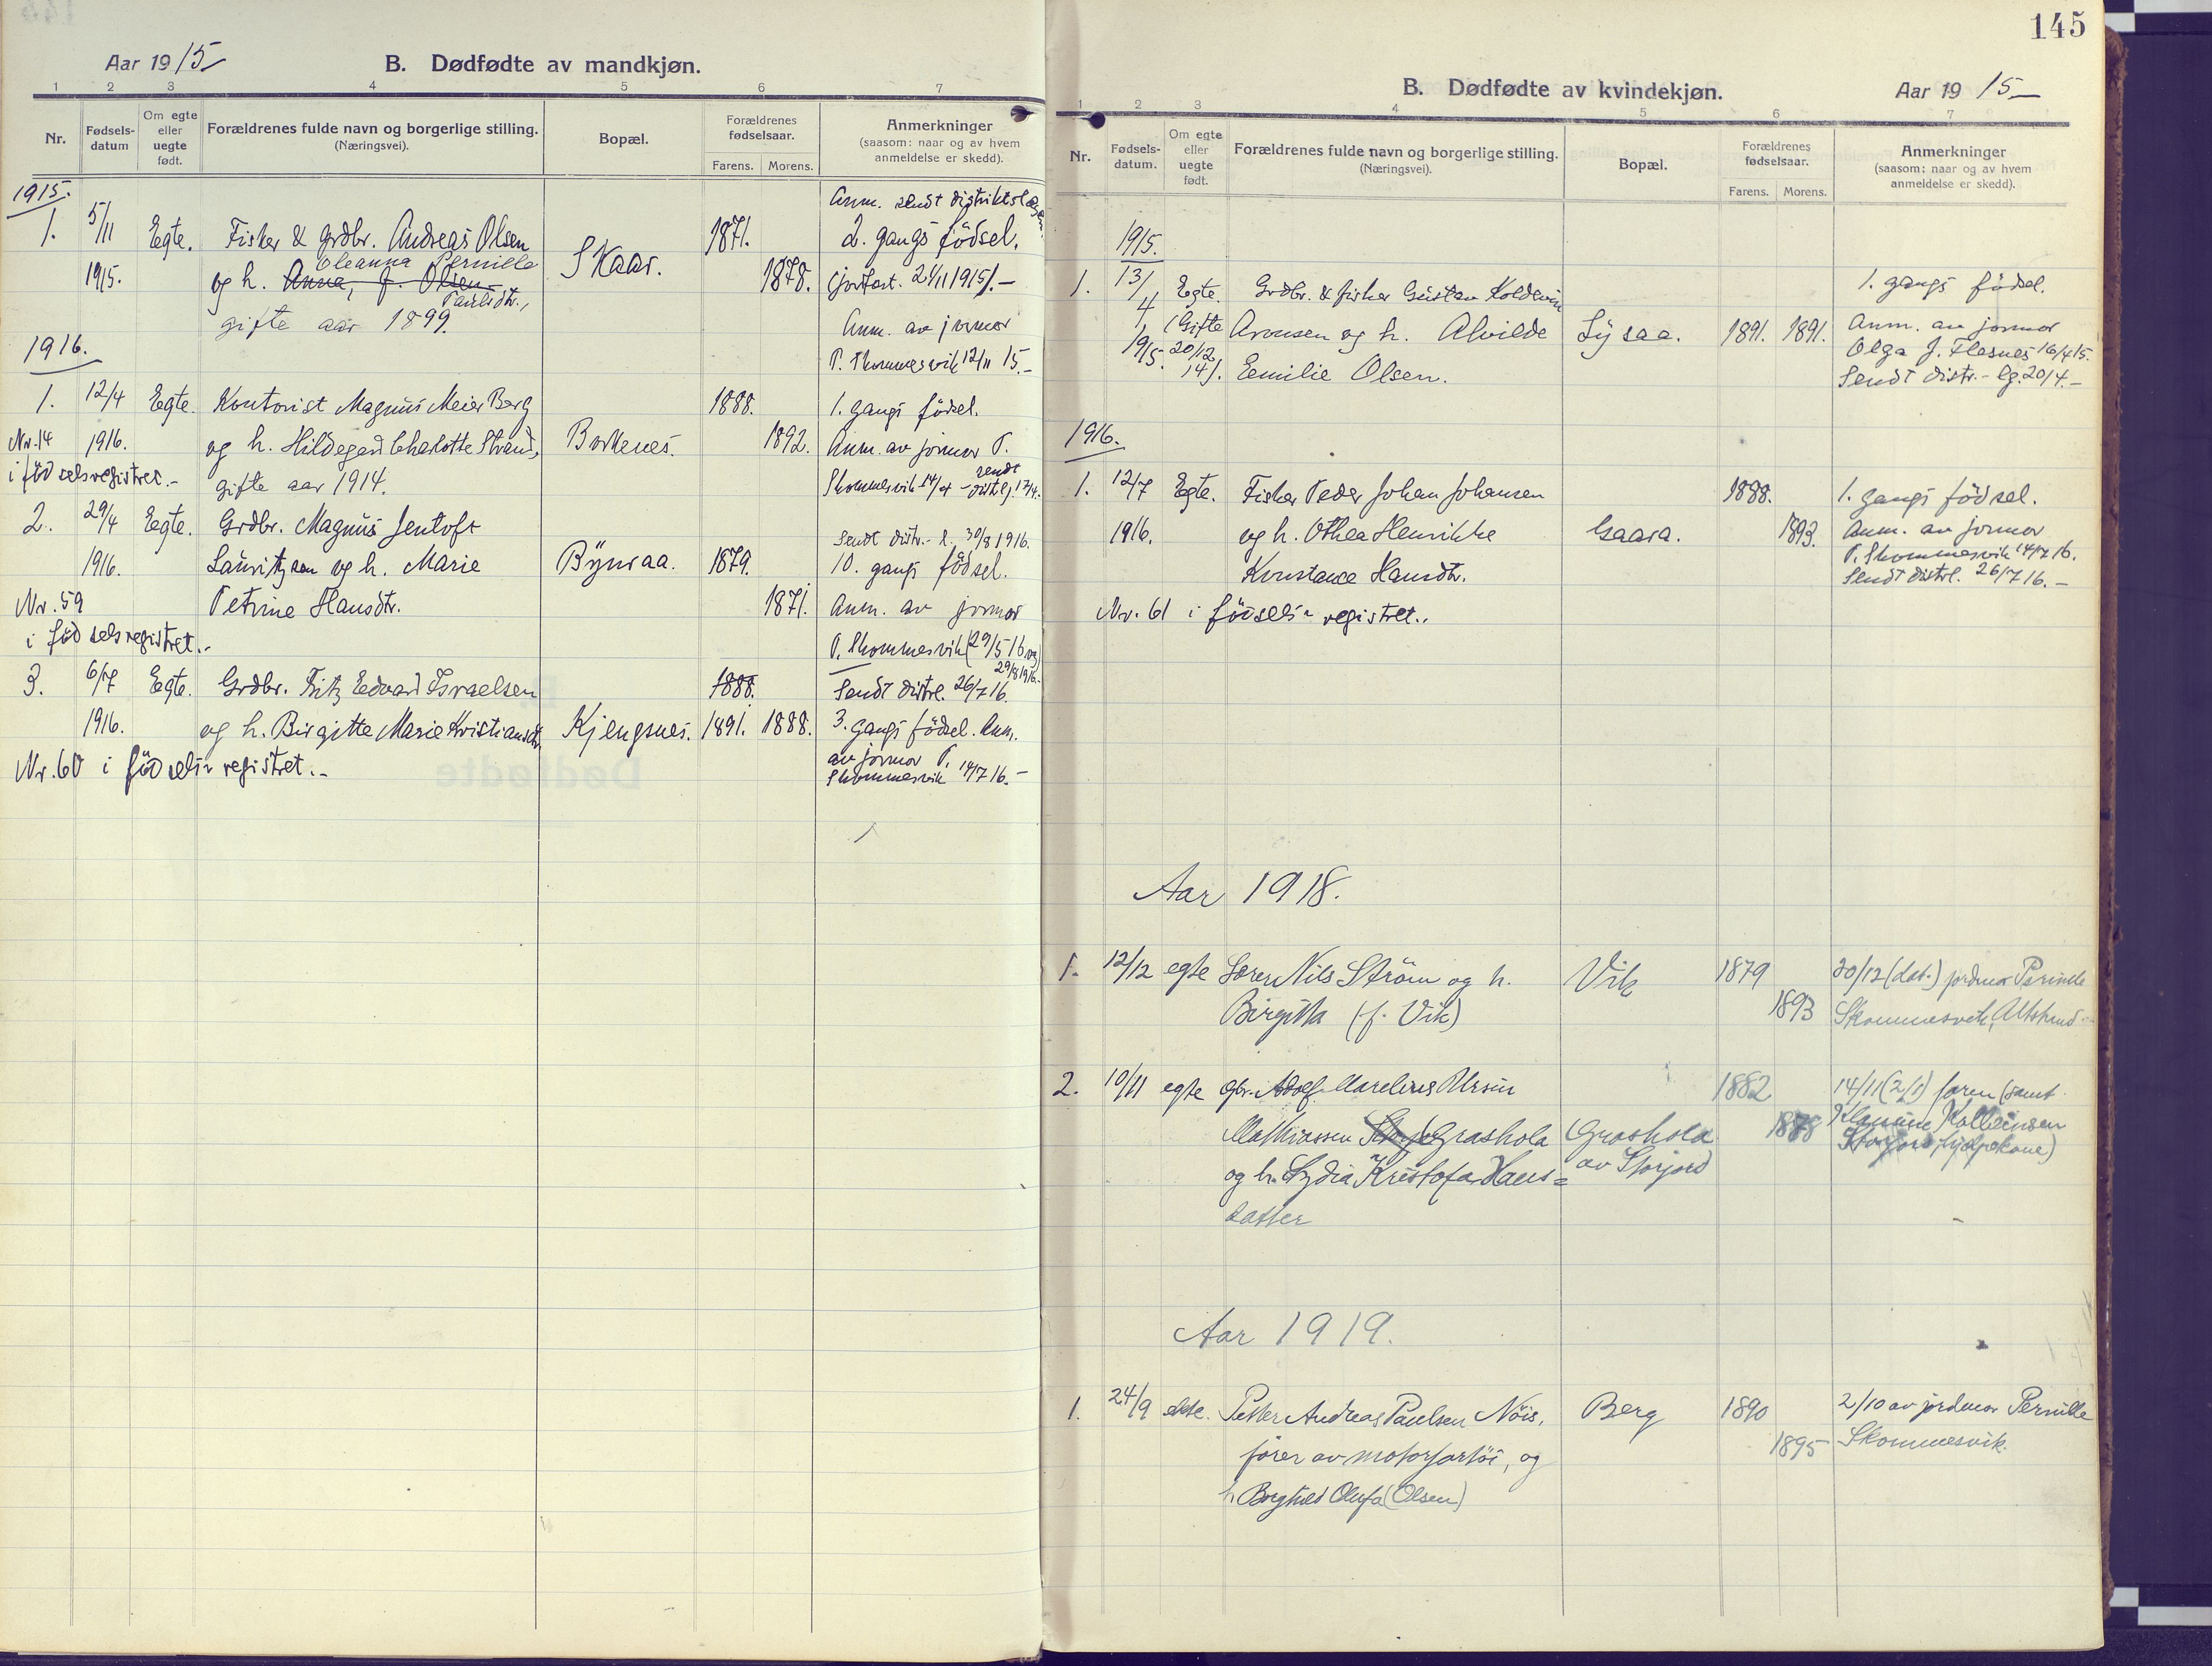 Aar 1915
B. Dødfødte av mandkjøn.
1 2 3 4 5 6 7
Nr.
Fødsels-
datum
Om egte
eller
uegte
født.
Forældrenes fulde navn og borgerlige stilling.
(Næringsvei).
Bopæl.
Forældrenes
fødselsaar.
Farens. Morens.
Anmerkninger
(saasom: naar og av hvem
anmeldelse er skedd).
1915.
Anm. sendt distriktslægen
1. 5/11 Egte. Fisker & grdbr. Andreas Olsen 1871. 2. gangs födsel.
Oleanna Pernille
1915. og h. Anna, f. Olsen Skaar. 1878. 24/11 1915.-
Paulsdtr.,
gifte aar 1899. Anm. av jormor
1916.
P. Skommesvik 12/11 15.-
1. 12/4 Egte. Kontorist Magnus Meier Berg 1888. 1. gangs födsel.
Nr. 14 1916. og h. Hildegard Charlotte Strand, Borkenes. 1892. Anm. av jormor P.
i födselsregistret.- gifte aar 1914. Skommesvik 14/4 - sendt distrl. 17/4.
2. 29/4 Egte. Grdbr. Magnus Jentoft Sendt distr.-l. 30/8 1916.
1916. Lauritzen og h. Marie Bÿnraa. 1879. 10. gangs födsel.
Nr. 59 Petrine Hansdtr. 1871. Anm. av jormor
i födselsregistret.- P. Skommesvik (29/5 16 og
29/8 1916.-
3. 6/7 Egte. Grdbr. Fritz Edvard Israelsen 1888. Sendt distrl. 26/7 16.
1916. og h. Birgitte Marie Kristiansdtr. Kjengsnes. 1891. 1888. 3. gangs födsel. Anm.
Nr. 60 i födsels- registret.- av jormor P.
Skommesvik 14/7 16.-
145
B. Dødfødte av kvindekjøn.
Aar 1915
1 2 3 4 5 6 7
Nr.
Fødsels-
datum.
Om egte
eller
uegte
født.
Forældrenes fulde navn og borgerlige stilling.
(Næringsvei).
Bopæl.
Forældrenes
fødselsaar.
Farens. Morens.
Anmerkninger
(saasom: naar og av hvem
anmeldelse er skedd).
1915.
1. 13/4 Egte. Grdbr. & fisker Gustav Koldevin 1. gangs födsel.
1915. (Gifte 20/12 14). Aronsen og h. Alvilde Lÿsaa. 1891. 1891. Anm. av jormor
Emilie Olsen. Olga J. Flesnes 16/4 15.
Sendt distr.-lg. 20/4.-
1916.
1. 12/7 Egte. Fisker Peder Johan Johansen 1888. 1. gangs födsel.
1916. og h. Othea Henrikke Gaara. 1893. Anm. av jormor
Konstance Hansdtr. P. Skommesvik 14/7 16.
Sendt distrl. 26/7 16.-
Nr. 61 i födsels- registret.-
Aar 1918.
1. 12/12 egte Lærer Nils Ström og h. Vik 1879 20/12 (dat.) jordmor Pernille
Birgitta (f. Vik) 1893 Skommesvik,
2. 10/11 egte gbr. Adolf Marelius Ursin 1882 14/11 (2/1) faren (samt
Mathiassen Grashola Grashola 1878
og h. Lydia Kristofa Hans= av Storjord Storjord, hjelpekone)
datter
Aar 1919.
1. 24/9 ekte. Petter Andreas Paulsen Nöis, Berg 1890 2/10 av jordmor Pernille
förer av motorfartöi, og 1895 Skommesvik.
h. Borghild Olufa (Olsen)